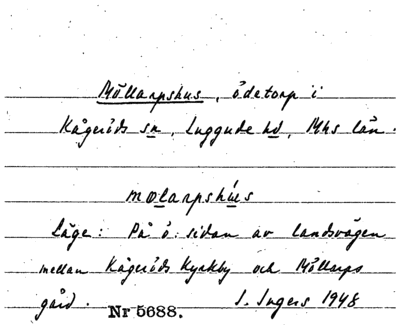 Möllarpshus, ödetorp i
Kågeröds sn, Luggude hd, Mhs län.
mølarpshús
Läge: På ö. sidan av landsvägen
mellan Kågeröds Kyrkby och Möllarps
gård. Nr 5688. I. Ingers 1948